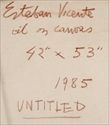 Esteban Vicente
oil on canvas
42" x 53"
1985
UNTITLED